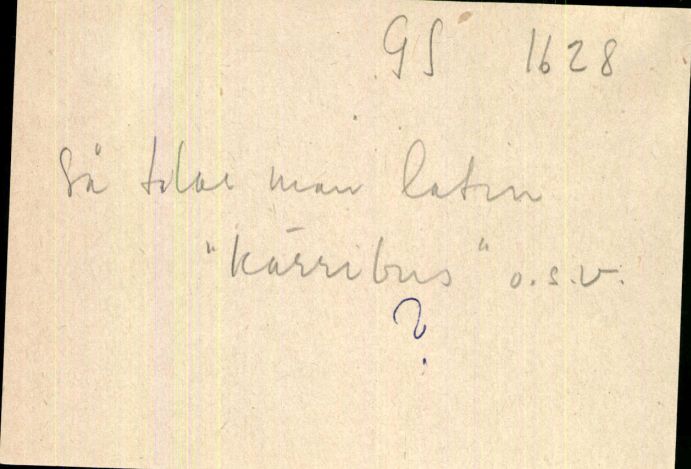 GS 1628
Så talar man latin
"kärribus" o.s.v.
?